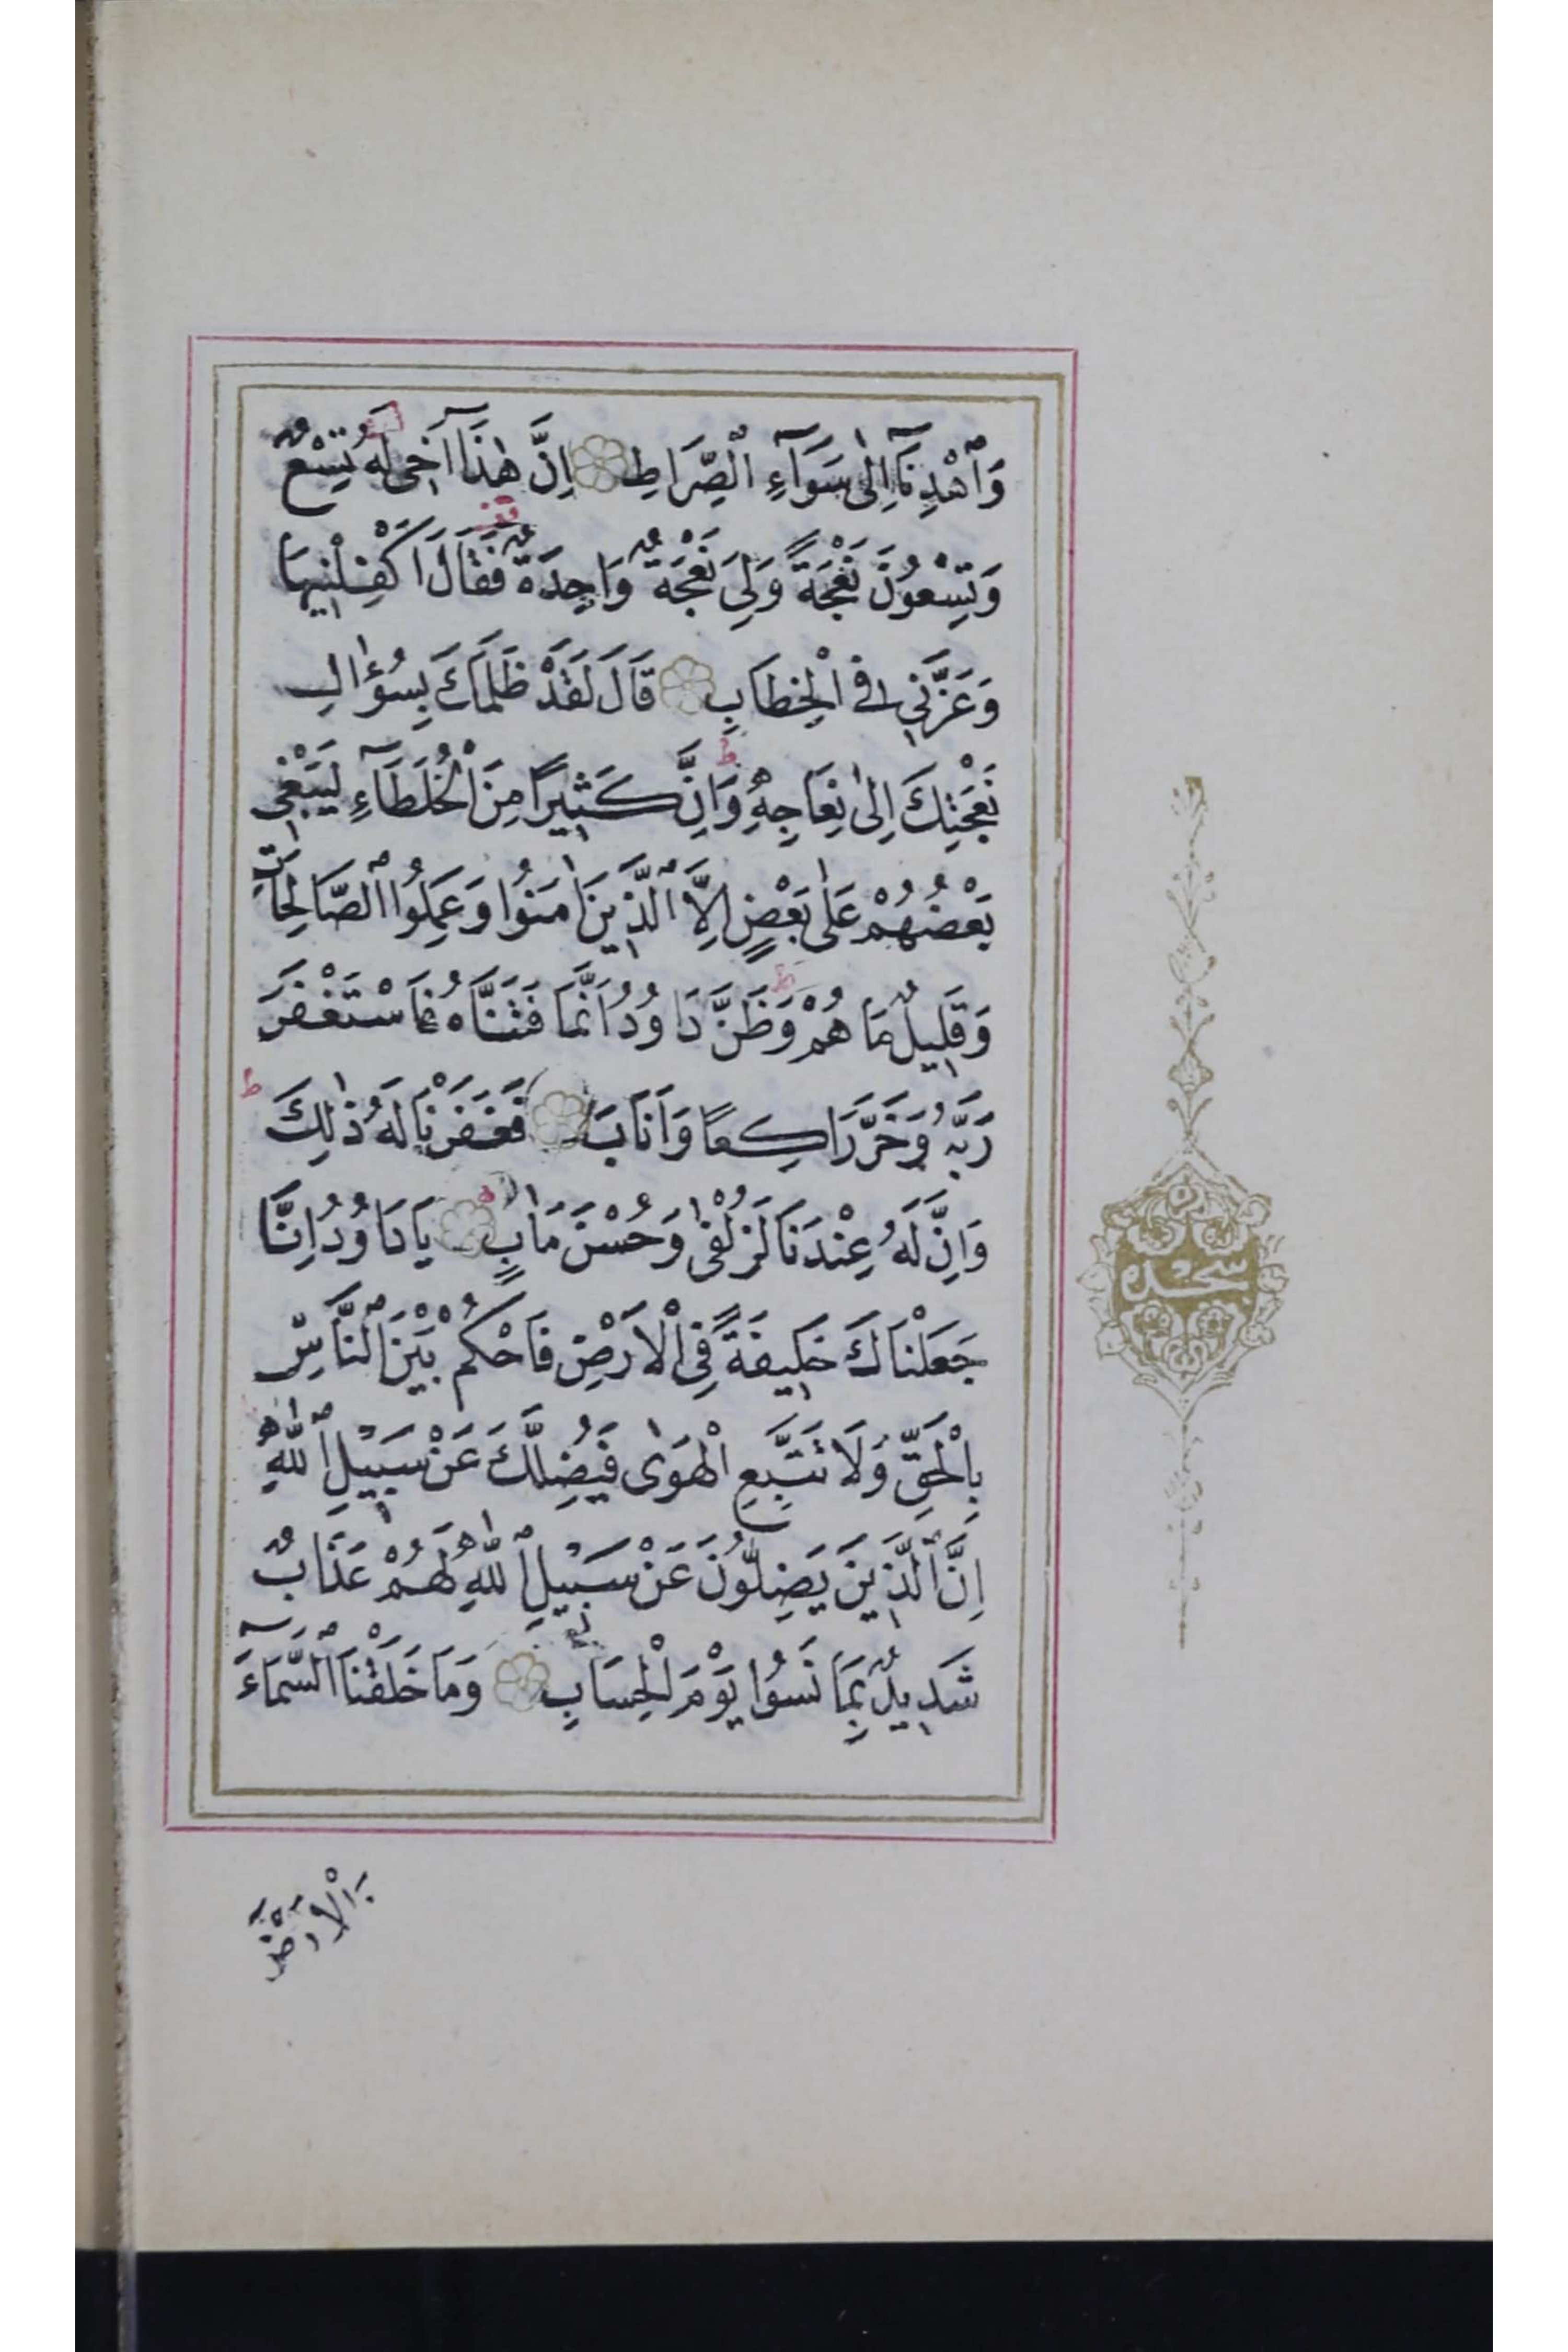 وَاَهْدِنَآ اِلٰى سَوَآءِ الصِّرَاطِ اِنَّ هٰذَآ اَخٖى لَهُ تِسْعٌ
وَتِسْعُونَ نَعْجَةً وَلِىَ نَعْجَةٌ وَاحِدَةٌ فَقَالَ اَكْفِلْنٖيهَا
وَعَزَّنٖى فِى الْخِطَابِ قَالَ لَقَدْ ظَلَمَكَ بِسُؤٰالِ
نَعْجَتِكَ اِلٰى نِعَاجِهٖ وَاِنَّ كَثٖيرًا مِنَ الْخُلَطَآءِ لَيَبْغٖى
بَعْضُهُمْ عَلٰى بَعْضٍ اِلَّا الَّذٖينَ اٰمَنُوا وَعَمِلُوا الصَّالِحَاتِ
وَقَلٖيلٌ مَا هُمْ وَظَنَّ دَاوُدُ اَنَّمَا فَتَنَّاهُ فَاسْتَغْفَرَ
رَبَّهُ وَخَرَّ رَاكِعًا وَاَنَابَ فَغَفَرْنَا لَهُ ذٰلِكَ
وَاِنَّ لَهُ عِنْدَنَا لَزُلْفٰى وَحُسْنَ مَاٰبٍ يَا دَاوُدُ اِنَّا
جَعَلْنَاكَ خَلٖيفَةً فِى الْاَرْضِ فَاحْكُمْ بَيْنَ النَّاسِ
بِالْحَقِّ وَلَا تَتَّبِعِ الْهَوٰى فَيُضِلَّكَ عَنْ سَبٖيلِ اللّٰهِ
اِنَّ الَّذٖينَ يَضِلُّونَ عَنْ سَبٖيلِ اللّٰهِ لَهُمْ عَذَابٌ
شَدٖيدٌ بِمَا نَسُوا يَوْمَ الْحِسَابِ وَمَا خَلَقْنَا السَّمَآءَ
وَالْاَرْضَ
سجده